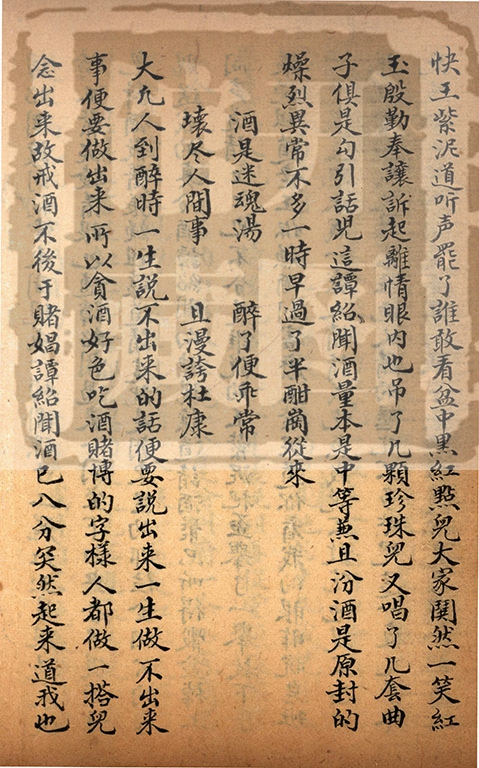 快王紫泥道听声罷了誰敢看盆中黒紅點兒大家鬨然一笑紅
玉殷勤奉讓訴起離情眼内也吊了几顆珍珠兒又唱了几套曲
子俱是勾引話児這譚紹聞酒量本是中等兼且汾酒是原封的
燥烈異常不多一時早過了半酣啇從來
酒是迷魂湯 醉了便乖常
壞尽人間事 且漫誇杜康
大凢人到醉時一生説不出来的話便要説出来一生做不出来
事便要做出来所以貪酒好色吃酒賭博的字様人都做一搭兒
念出来故戒酒不後于賭娼譚紹聞酒已八分突然起来道我也